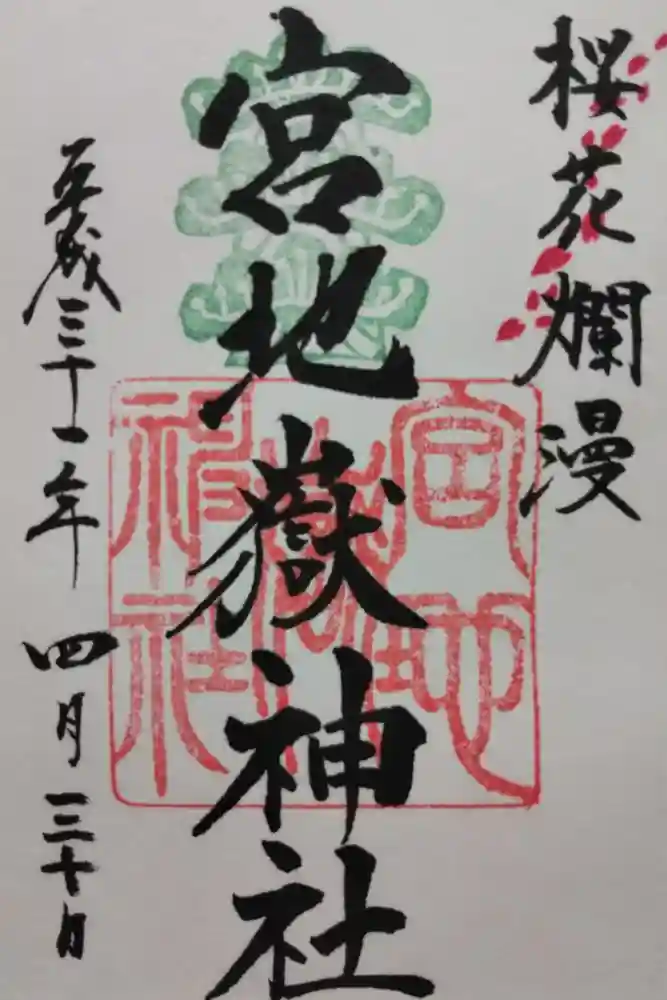 桜花爛漫
宮地嶽神社
平成三十一年四月三十日
宮地嶽神社